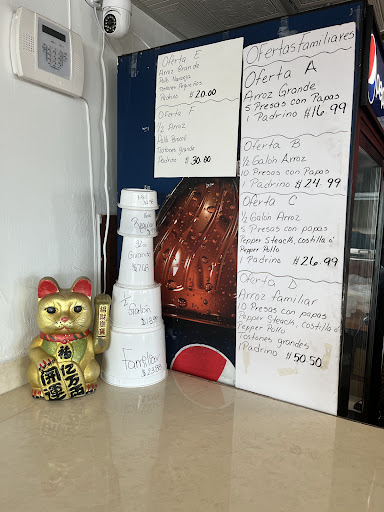 Oferta E
Arroz Grande
Pollo Naranja
Tostones Pequeños
Padrino $20.00
Oferta F
1/2 Arroz
Pollo Brocoli
Tostones grande
Padrino $30.00
Ofertas familiares
Oferta A
Arroz Grande
5 Presas con Papas
1 Padrino $16.99
Oferta B
1/2 Galón Arroz
10 Presas con Papas
1 Padrino $24.99
Oferta C
1/2 Galón Arroz
5 Presas con papas
Pepper Steack, costilla ó
Pepper Pollo
1 Padrino $26.99
Oferta D
Arroz familiar
10 Presas con papas
Pepper Steack, costilla ó
Pepper Pollo
Tostones grandes
1 Padrino $50.50
Regular
32oz
Grande
1/2
Galon
Familiar
開運